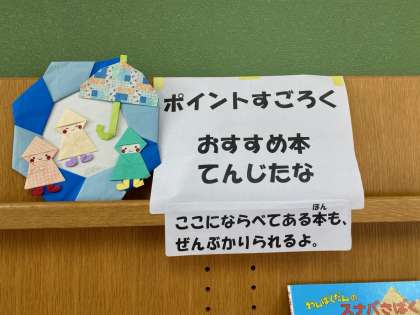 ポイントすごろく
おすすめ本
てんじたな
ここにならべてある本も、
ほん
ぜんぶかりられるよ。
わんぱくだんの
スナバさばく